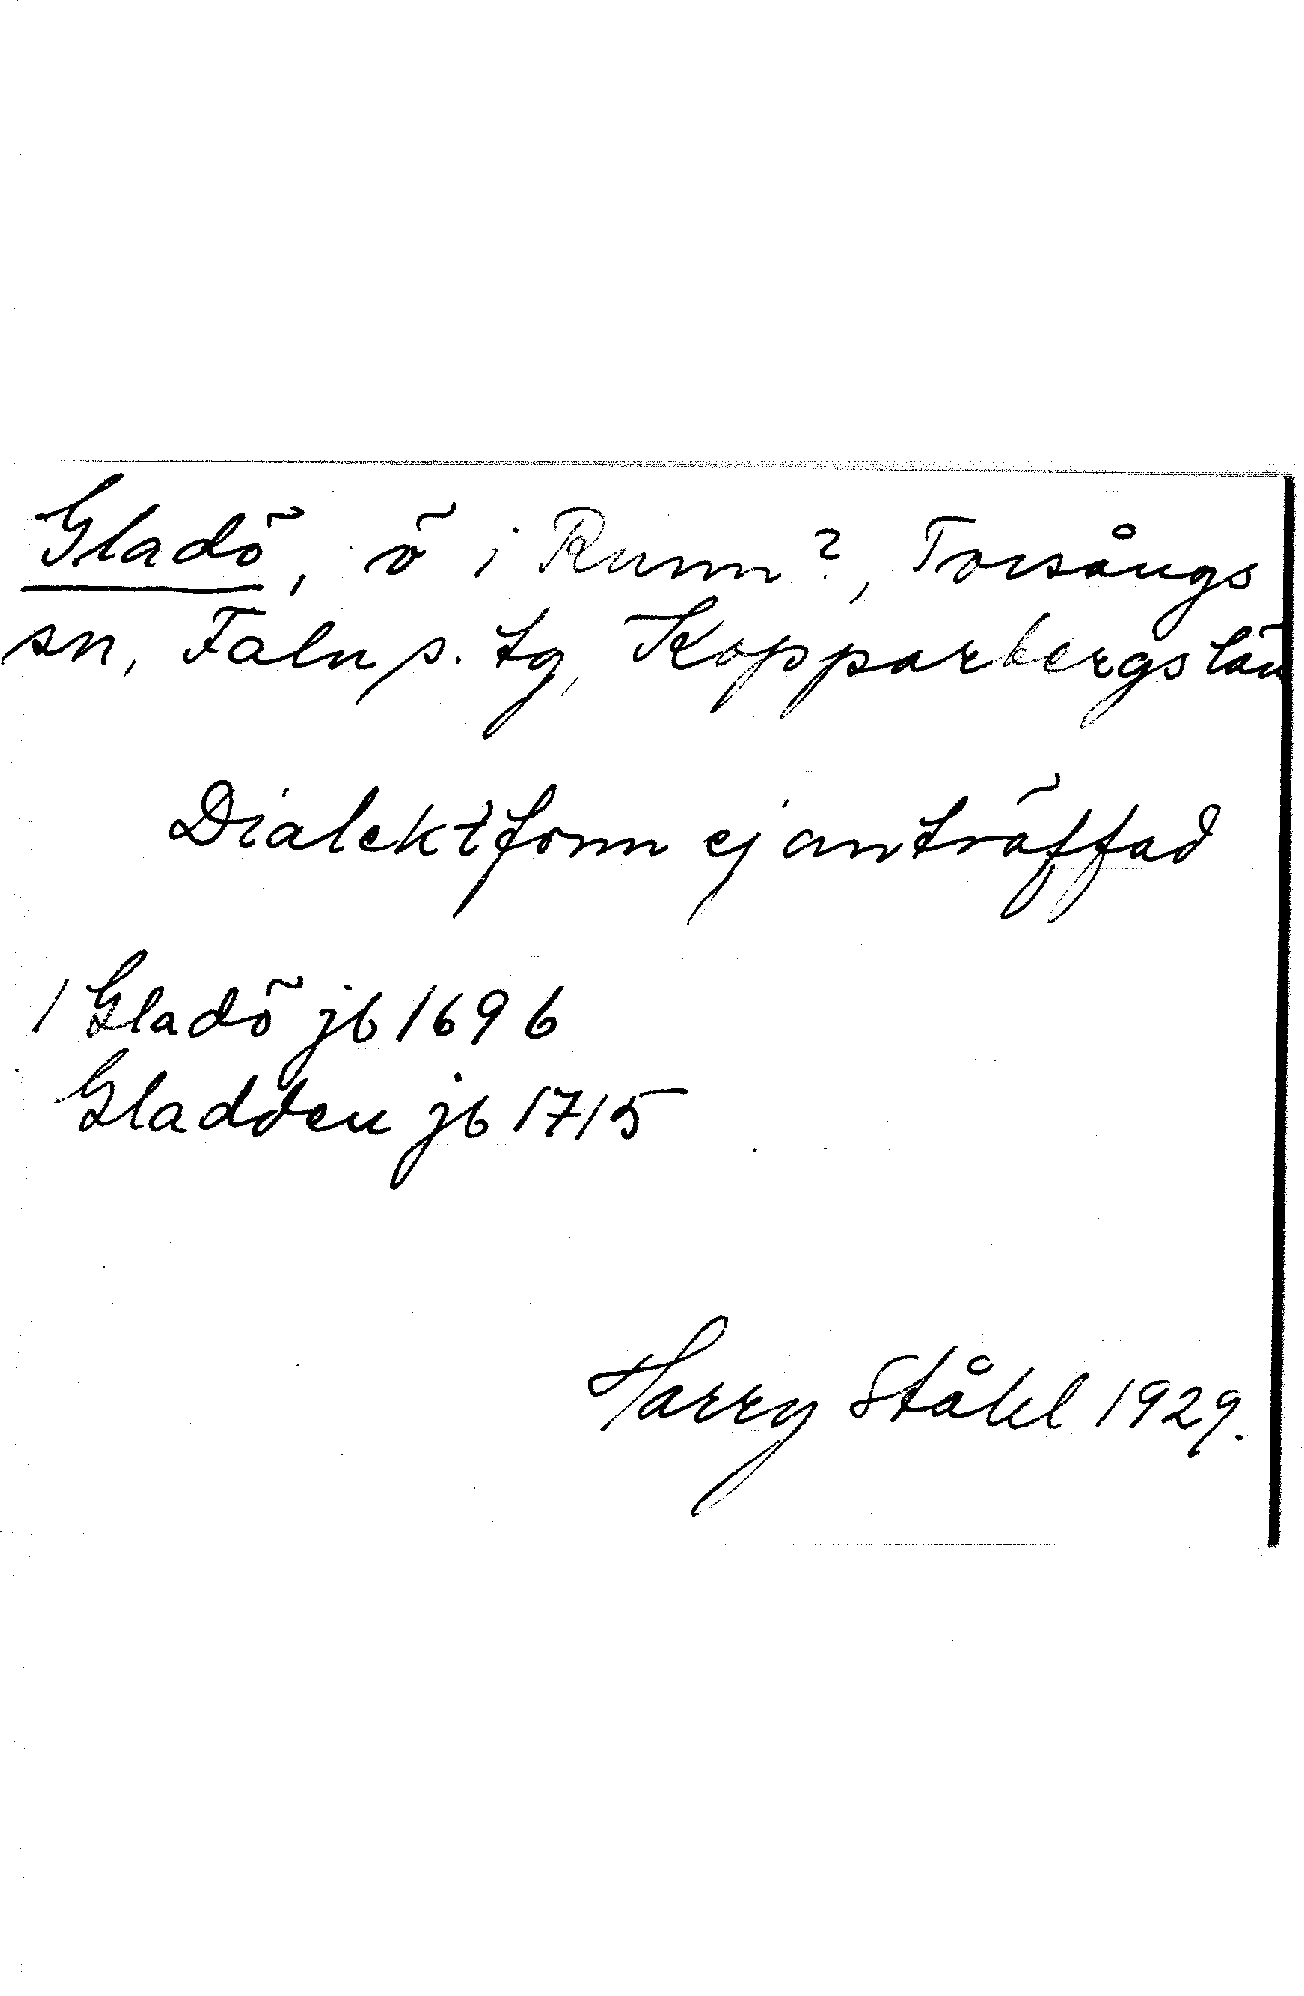 Gladö, ö i Runn?, Torsångs
sn, Falu s. tg, Kopparbergs län
Dialektform ej anträffad
/ Gladö jb 1696
Gladden jb 1715
Harry Ståhl 1929.